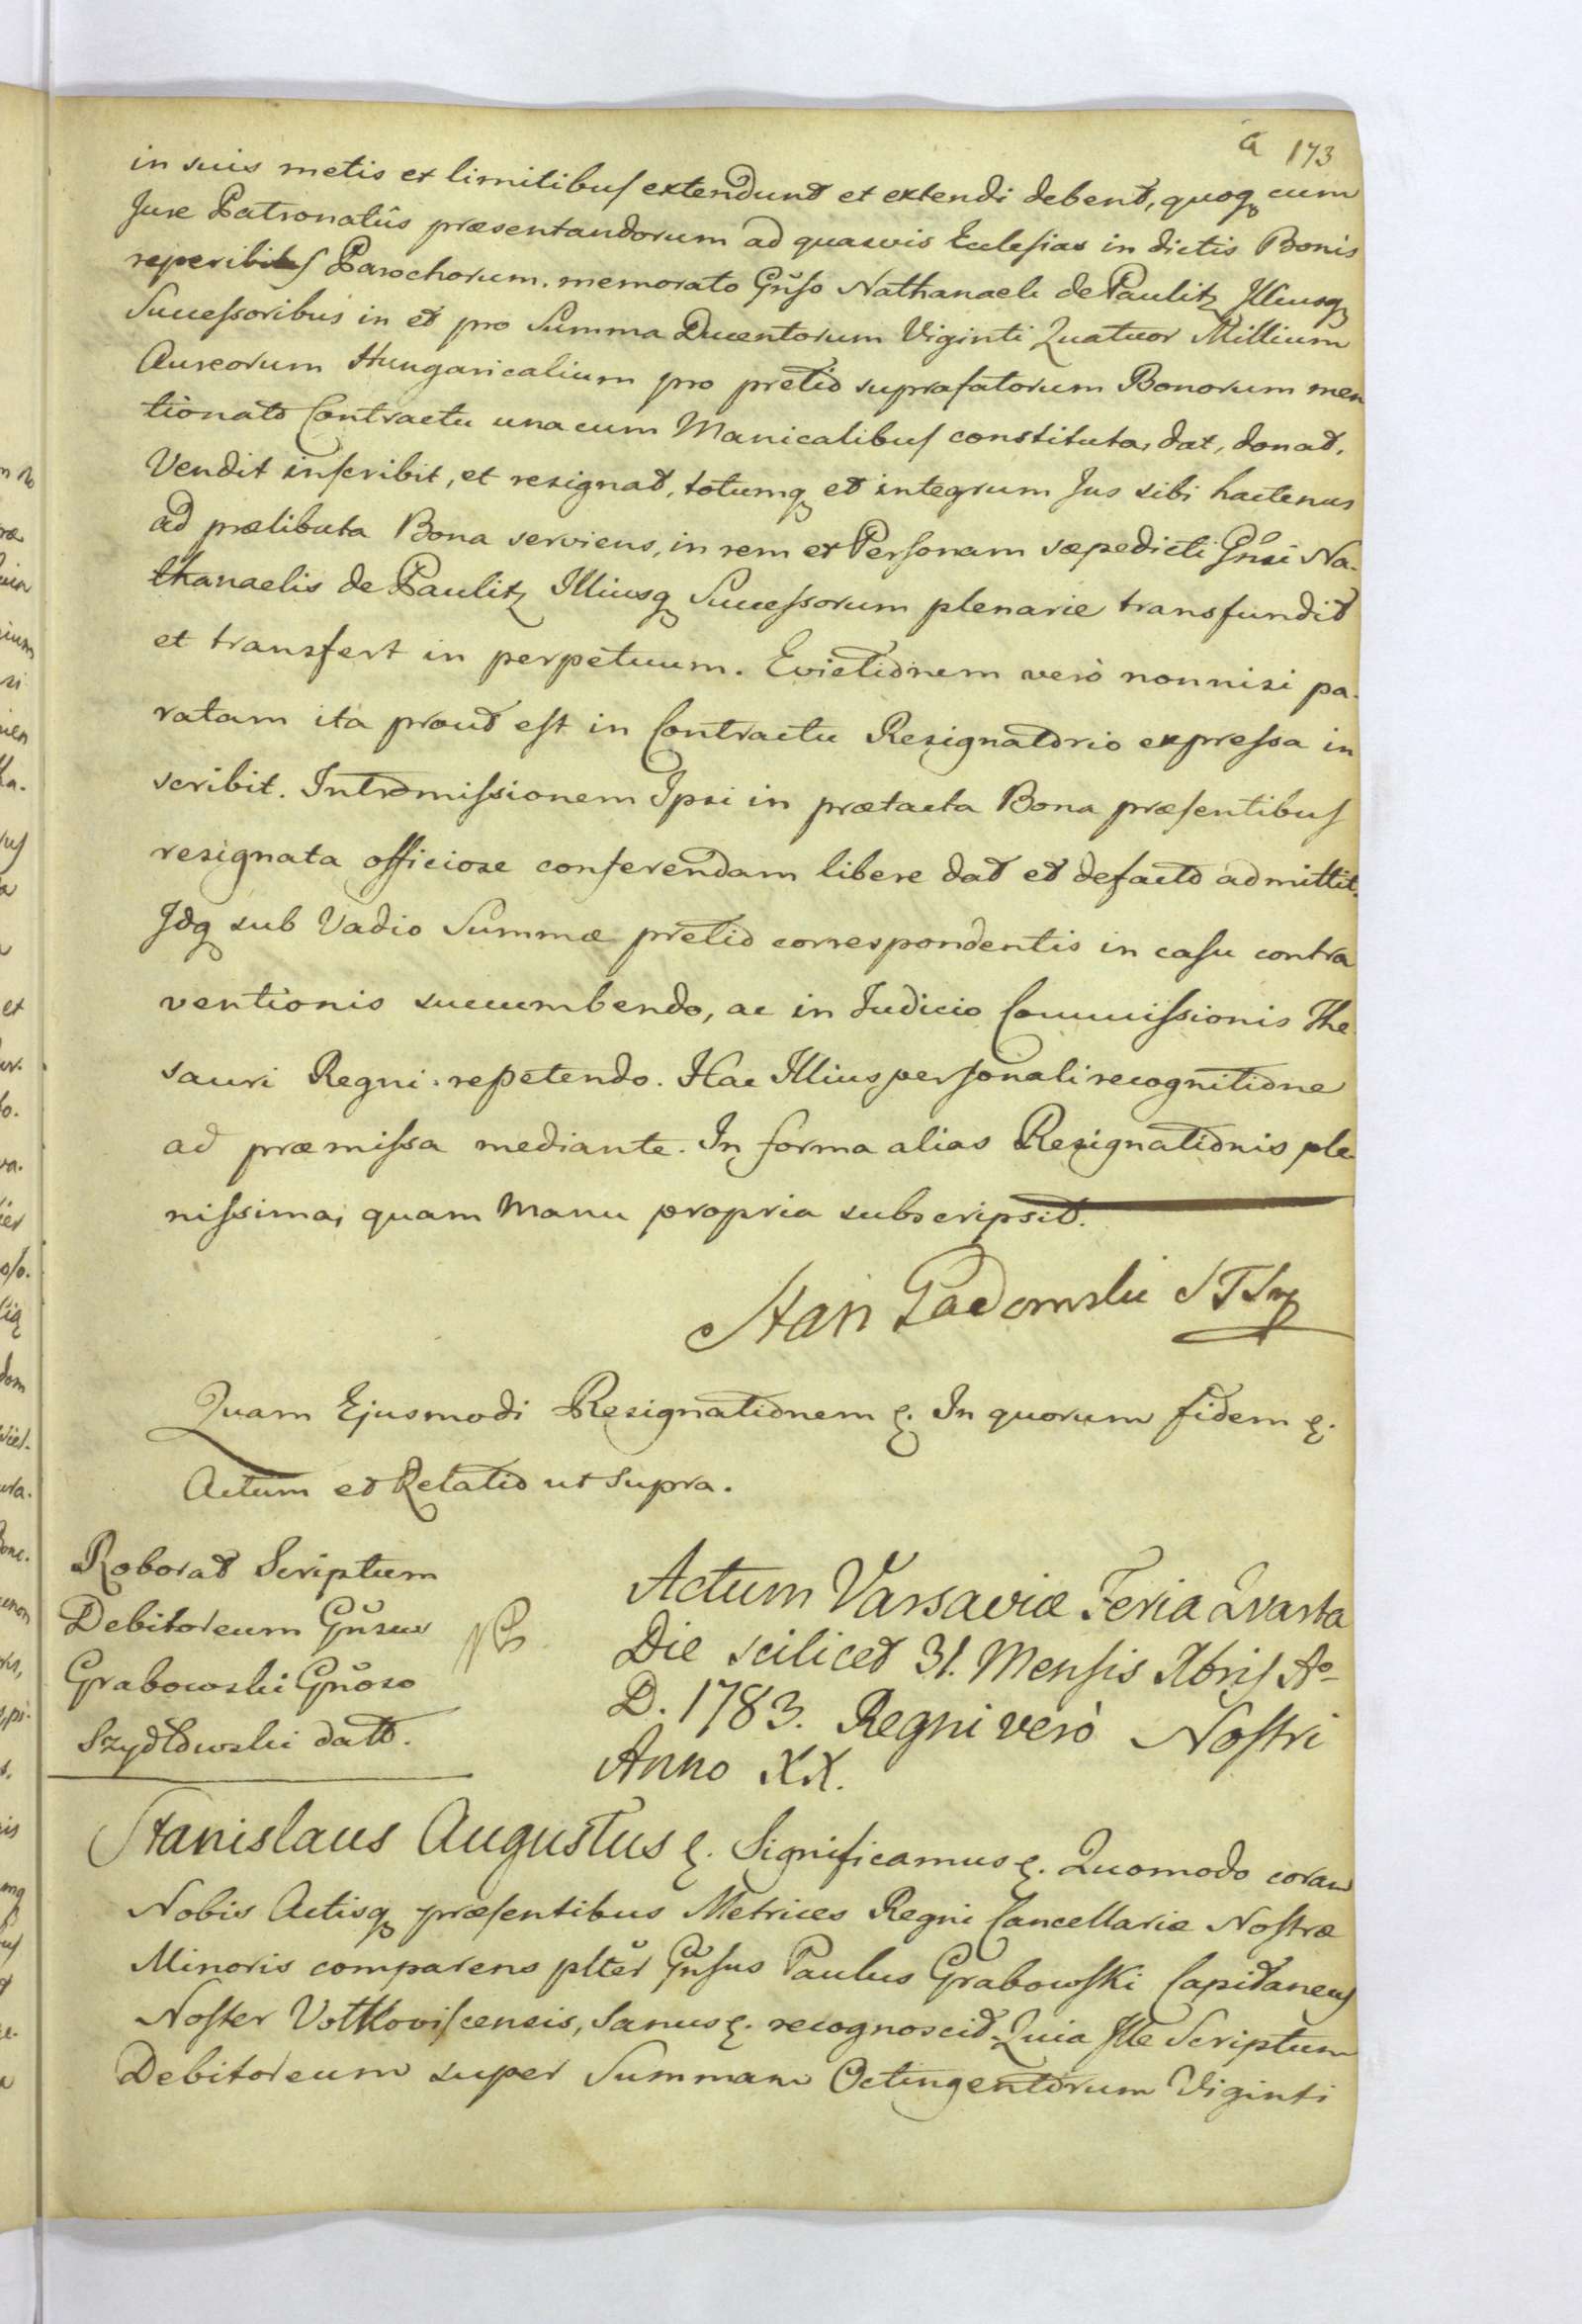 a 173
in suis metis et limitibus extendunt et extendi debent, quoq cum
Jure Patronatûs præsentandorum ad quasvis Ecclesias in dictis Bonis
reperibiles Parochorum. memorato Gnso Nathanaeli de Paulitz Illiusq
Successoribus in et pro Summa Ducentorum Viginti Quatuor Millium
Aureorum Hungaricalium pro pretio suprafatorum Bonorum men
tionato Contractu una cum Manicalibus constituta, dat, donat,
Vendit inscribit, et resignat, totumq et integrum Jus sibi hactenus
ad prælibata Bona serviens, in rem et Personam sæpedicti Gnsi Na-
thanaelis de Paulitz Illiusq Successorum plenarie transfundit
et transfert in perpetuum. Evictionem verò nonnisi pa-
ratam ita prout est in Contractu Resignatorio expressa in
scribit. Intromissionem Ipsi in prætacta Bona præsentibus
resignata officiose conferendam libere dat et defacto admittit.
Idq sub Vadio Summæ pretio correspondentis in casu contra
ventionis succumbendo, ac in Judicio Commissionis The
sauri Regni. repetendo. Hac Illius personali recognitione
ad præmissa mediante. In forma alias Resignationis ple
nissima, quam Manu propria subscripsit.
Stan Gadomski
Quam Ejusmodi Resignationem &. In quorum fidem &.
Actum et Relatio ut Supra.
Roborat Scriptum
Debitoreum Gnsus
Grabowski Gnoso
Szydłowski dato.
Actum Varsaviæ Feria Qvarta
Die scilicet 31. Mensis Xbris Ao
D. 1783. Regni verò Nostri
Anno XX.
Stanislaus Augustus &. Significamus &. Quomodo coram
Nobis Actisq præsentibus Metrices Regni Cancellariæ Nostræ
Minoris comparens plter Gnsus Paulus Grabowski Capitaneus
Noster Volkoviscensis, Sanus &. recognoscit. Quia Ille Scriptum
Debitoreum super Summam Octingentorum Viginti